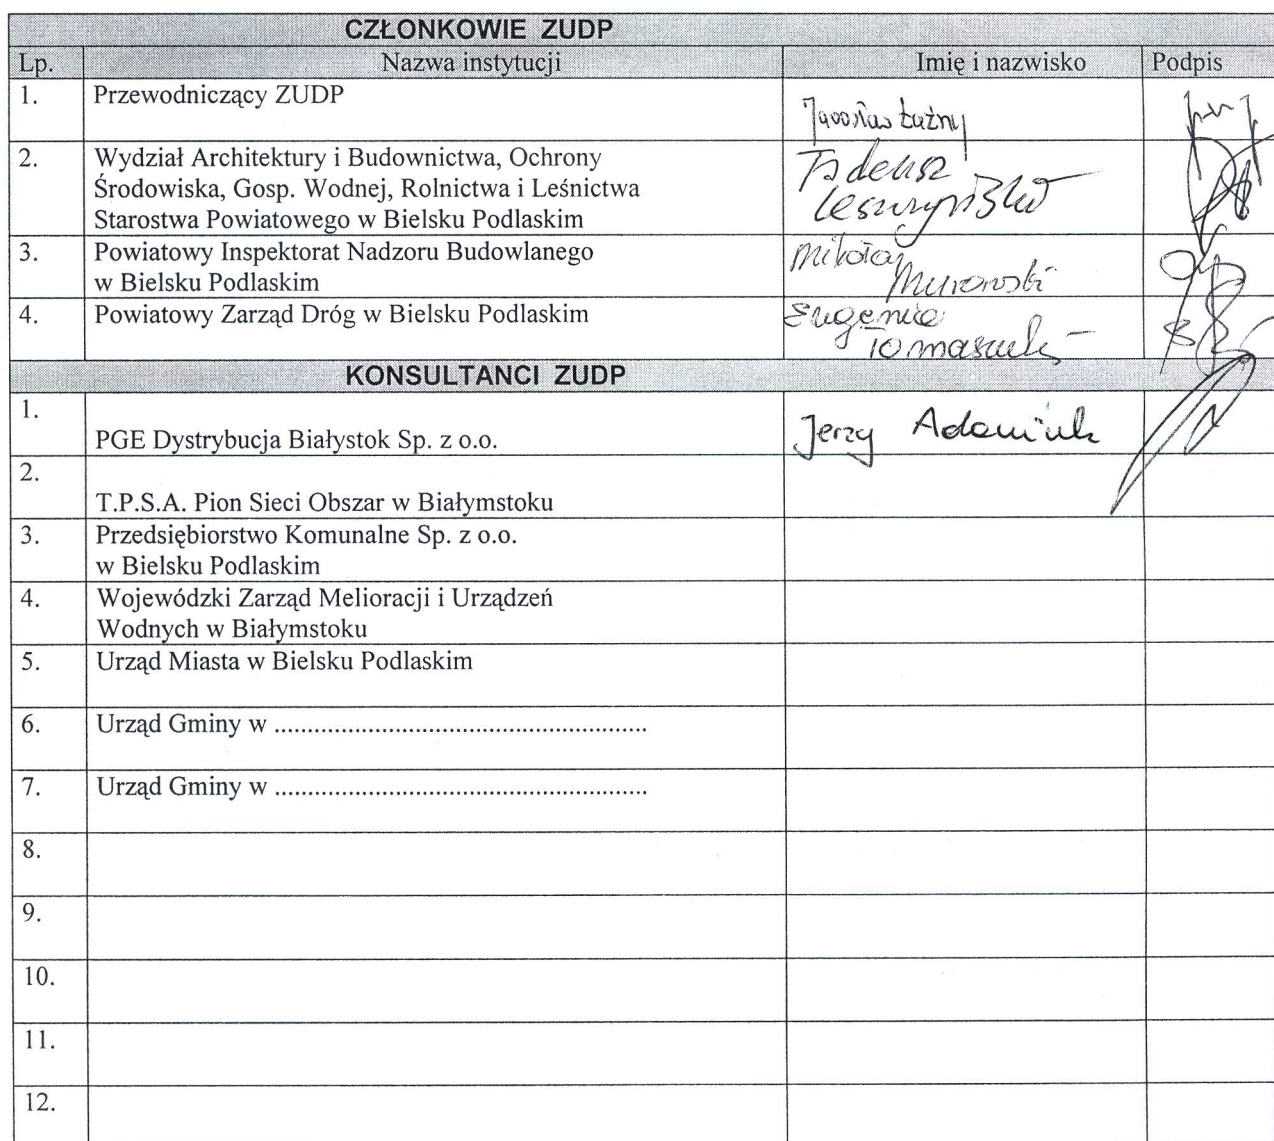 CZŁONKOWIE ZUDP
Lp. Nazwa instytucji Imię i nazwisko Podpis
1. Przewodniczący ZUDP Jarosław Łużny
2. Wydział Architektury i Budownictwa, Ochrony
Środowiska, Gosp. Wodnej, Rolnictwa i Leśnictwa
Starostwa Powiatowego w Bielsku Podlaskim
Tadeusz
Leszczyński
3. Powiatowy Inspektorat Nadzoru Budowlanego
w Bielsku Podlaskim
Mikołaj
Murowski
4. Powiatowy Zarząd Dróg w Bielsku Podlaskim
Eugenia
Tomaszuk
KONSULTANCI ZUDP
1.
PGE Dystrybucja Białystok Sp. z o.o. Jerzy Adamiuk
2.
T.P.S.A. Pion Sieci Obszar w Białymstoku
3. Przedsiębiorstwo Komunalne Sp. z o.o.
w Bielsku Podlaskim
4. Wojewódzki Zarząd Melioracji i Urządzeń
Wodnych w Białymstoku
5. Urząd Miasta w Bielsku Podlaskim
6. Urząd Gminy w ........................................................
7. Urząd Gminy w ........................................................
8.
9.
10.
11.
12.